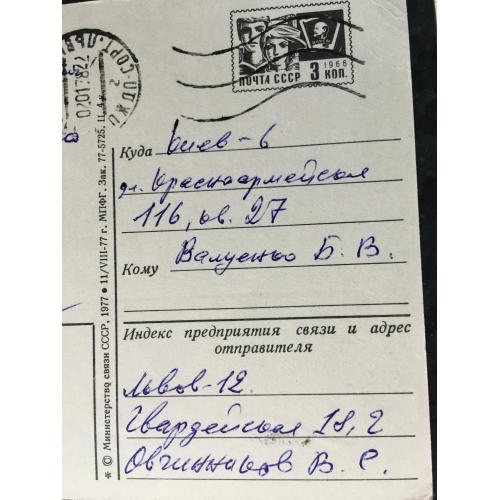 ПОЧТА СССР 3 КОП.
1966
Куда Киев-6
ул. Красноармейская
116, кв. 27
Кому Валуенко Б. В.
Индекс предприятия связи и адрес
отправителя
Львов-12.
Гвардейская 18, 2
Овчинников В. С.
* © Министерство связи СССР, 1977 • 11/VIII-77 г. МПФГ. Зак. 77-5725. Ц. 4 к.